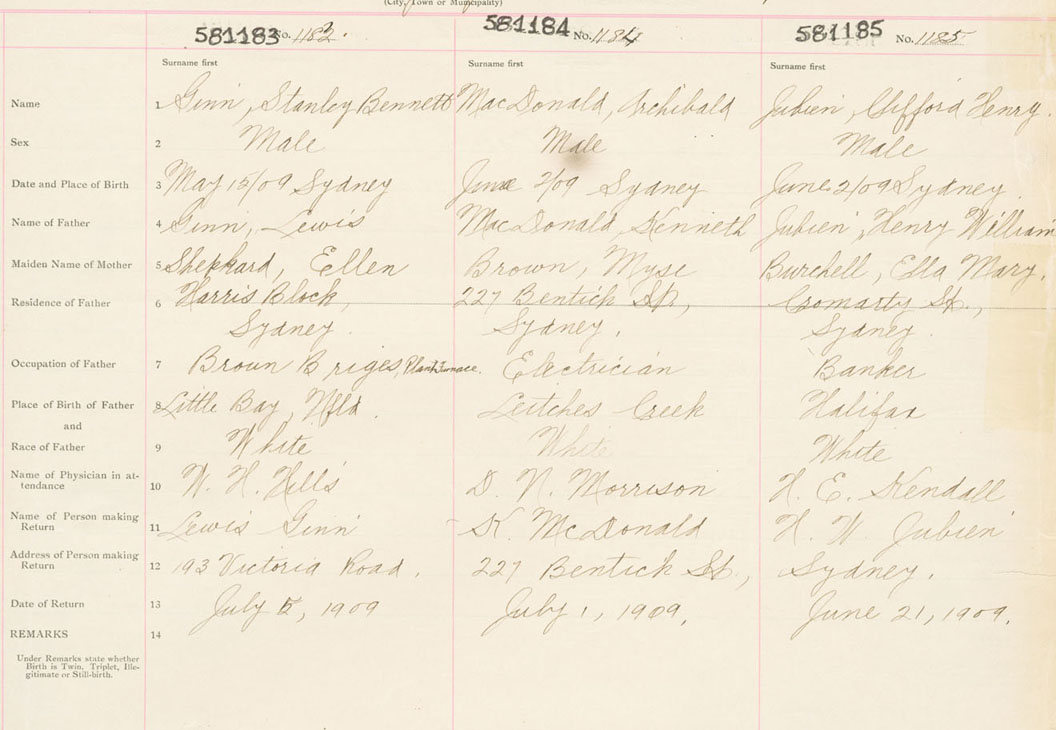 (City, Town or Municipality)
581183 No. 1183. 581184 No. 1184 581185 No. 1185
Surname first Surname first Surname first
Name 1 Ginn, Stanley Bennett MacDonald, Archibald Jubien, Clifford Henry.
Sex 2 Male Male Male
Date and Place of Birth 3 May 15/09 Sydney June 2/09 Sydney June 2/09 Sydney
Name of Father 4 Ginn, Lewis MacDonald, Kenneth Jubien, Henry William
Maiden Name of Mother 5 Shepkard, Ellen Brown, Myse Burchell, Ella Mary.
Residence of Father 6 Harris Block, 227 Bentick St, Cromarty St.,
Sydney. Sydney. Sydney.
Occupation of Father 7 Brown Briges, Electrician Banker
Place of Birth of Father 8 Little Bay, Nfld. Leitches Creek Halifax
and
Race of Father 9 White White White
Name of Physician in at-
tendance 10 W. H. Hells D. N. Morrison H. E. Kendall
Name of Person making
Return 11 Lewis Ginn K. McDonald H. W. Jubien
Address of Person making
Return 12 193 Victoria Road. 227 Bentick St., Sydney.
Date of Return 13 July 5, 1909 July 1, 1909, June 21, 1909.
REMARKS 14
Under Remarks state whether
Birth is Twin, Triplet, Ille-
gitimate or Still-birth.